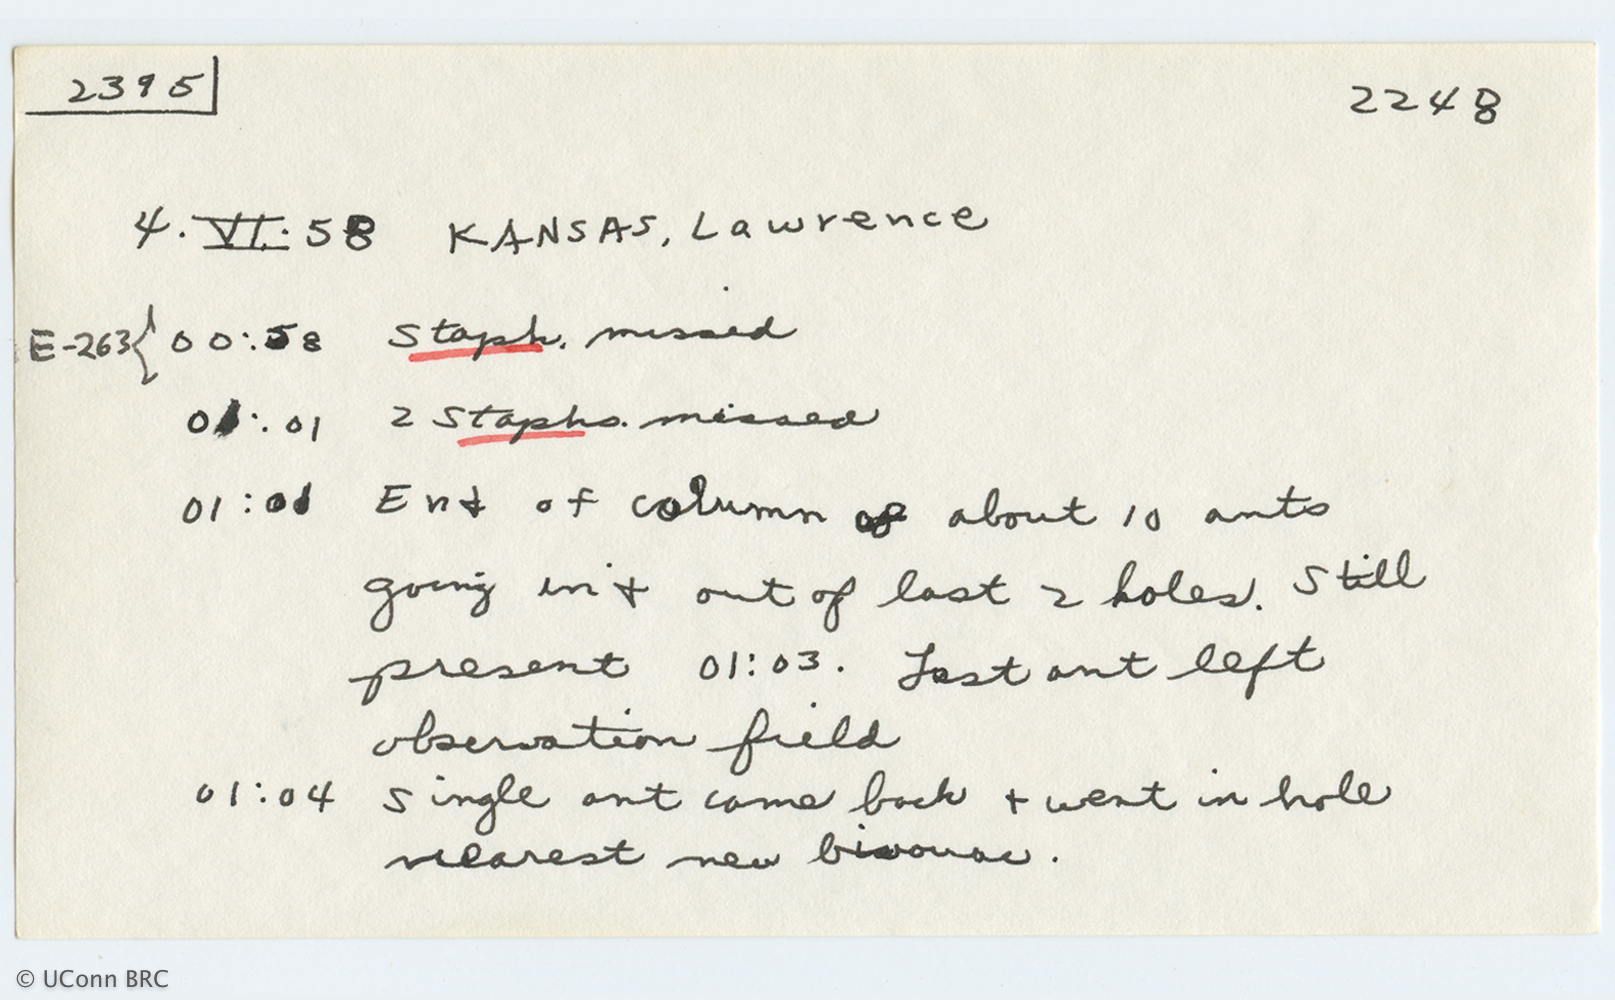 2395
2248
4.VI.58 KANSAS, Lawrence
E-263{ 00:58 Staph. missed
01:01 2 Staphs. missed
01:01 End of column of about 10 ants
going in + out of last 2 holes. Still
present 01:03. Last ant left
observation field
01:04 Single ant came back + went in hole
nearest new bivouac.
© UConn BRC